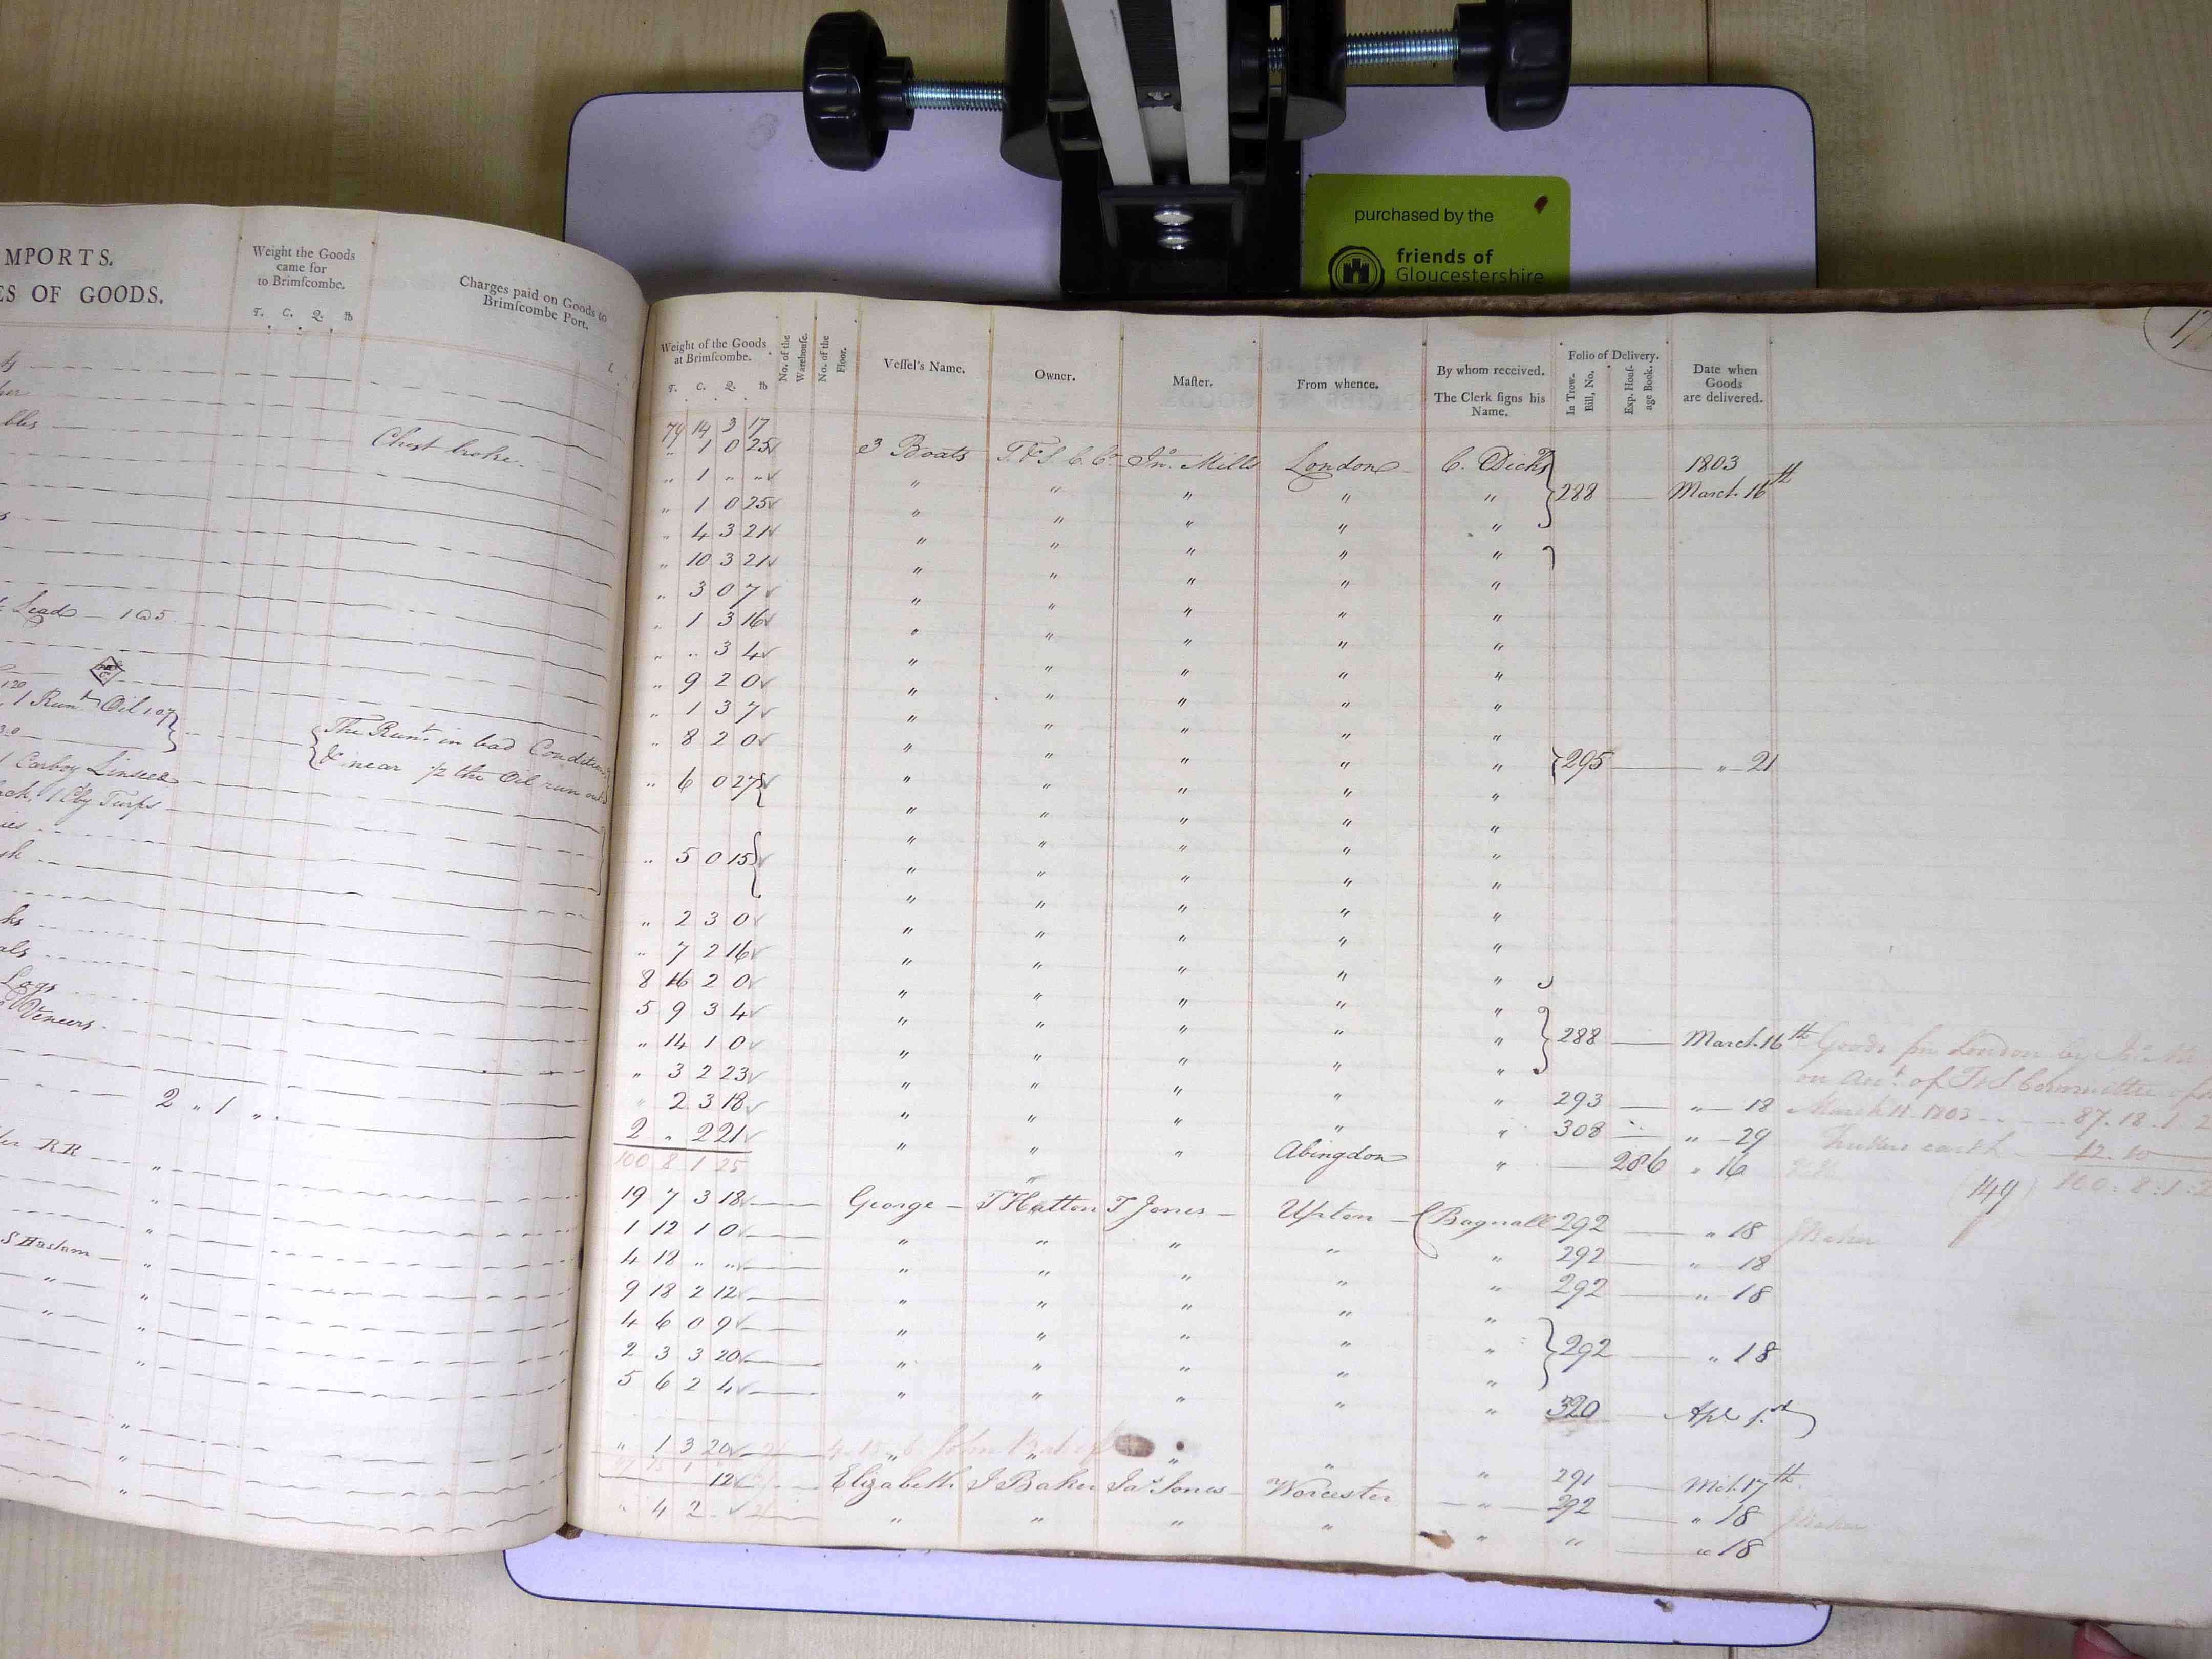 MPORTS.
ES OF GOODS.
Weight the Goods
came for
to Brimſcombe.
T. C. Q. lb
Charges paid on Goods to
Brimſcombe Port.
Chest broke
Lead 1 @ 5
1 Runt Oil 107
The Runt in bad Condition
& near 1/2 the Oil run out
1 Carboy Linseed
1 Cby Turps
Logs
Veneers
2 " 1 "
RR
S Haslam
purchased by the
friends of
Gloucestershire
Weight of the Goods
at Brimſcombe.
T. C. Q. lb
No. of the
Warehouſe.
No. of the
Floor.
Veſſel's Name.
Owner.
Maſter.
From whence.
By whom received.
The Clerk ſigns his
Name.
Folio of Delivery.
In Trow-
Bill, No.
Exp. Houſ-
age Book.
Date when
Goods
are delivered.
17
79 14 3 17
" 1 0 25 3 Boats T. & S. C. Co. Jno. Mills London C. Dicks 1803
" 1 " " " " " " " 288 March 16th
" 1 0 25 " " " " "
" 4 3 21 " " " " "
" 10 3 21 " " " " "
" 3 0 7 " " " " "
" 1 3 16 " " " " "
" " 3 4 " " " " "
" 9 2 0 " " " " "
" 1 3 7 " " " " "
" 8 2 0 " " " " " 295 " 21
" 6 0 27 " " " " "
" 5 0 15 " " " " "
" 2 3 0 " " " " "
" 7 2 16 " " " " "
8 16 2 0 " " " " "
5 9 3 4 " " " " "
" 14 1 0 " " " " " 288 March 16th Goods for London by Jno
" 3 2 23 " " " " " on Acct. of T & S Committee
" 2 3 18 " " " " " 293 " 18 March 11 1803 87.18.1.2
2 " 2 21 " " " " " 308 " 29 12.10
100 8 1 25 " " " Abingdon " 286 " 16 (149) 100:8:1:
19 7 3 18 George T Hatton T Jones Upton C Bagnall 292 " 18 J Baker
1 12 1 0 " " " " " 292 " 18
4 18 " " " " " " " 292 " 18
9 18 2 12 " " " " "
4 6 0 9 " " " " " 292 " 18
2 3 3 20 " " " " "
5 6 2 4 " " " " " 320 Apl 1st
" 1 3 20 " " " " " 291 Mch. 17th
12 Elizabeth J Baker Jas Jones Worcester " 292 " 18 J Baker
" 4 2 " " " " " " " " 18